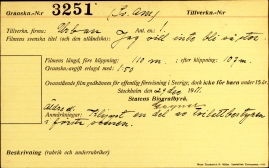 Gransk.-N:r 3251 (Sv. Am) Tillverkn.-N:r
Tillverkn. firma: Urban Am. el.
Filmens svenska titel (och den utländska): Jag vill inte bli så stor
Filmens längd, före klippning: 110 m. ; efter klippning: 107 m.
Gransknings-avgift erlagd med: 1:50
Ovanstående film godkännes för offentlig förevisning i Sverige, dock icke för barn under 15 år.
Stockholm den 29 dec. 1911.
Statens Biografbyrå.
Äldre d.
Anmärkningar: Klippt en del av
i första scenen.
Beskrivning (rubrik och underrubriker)